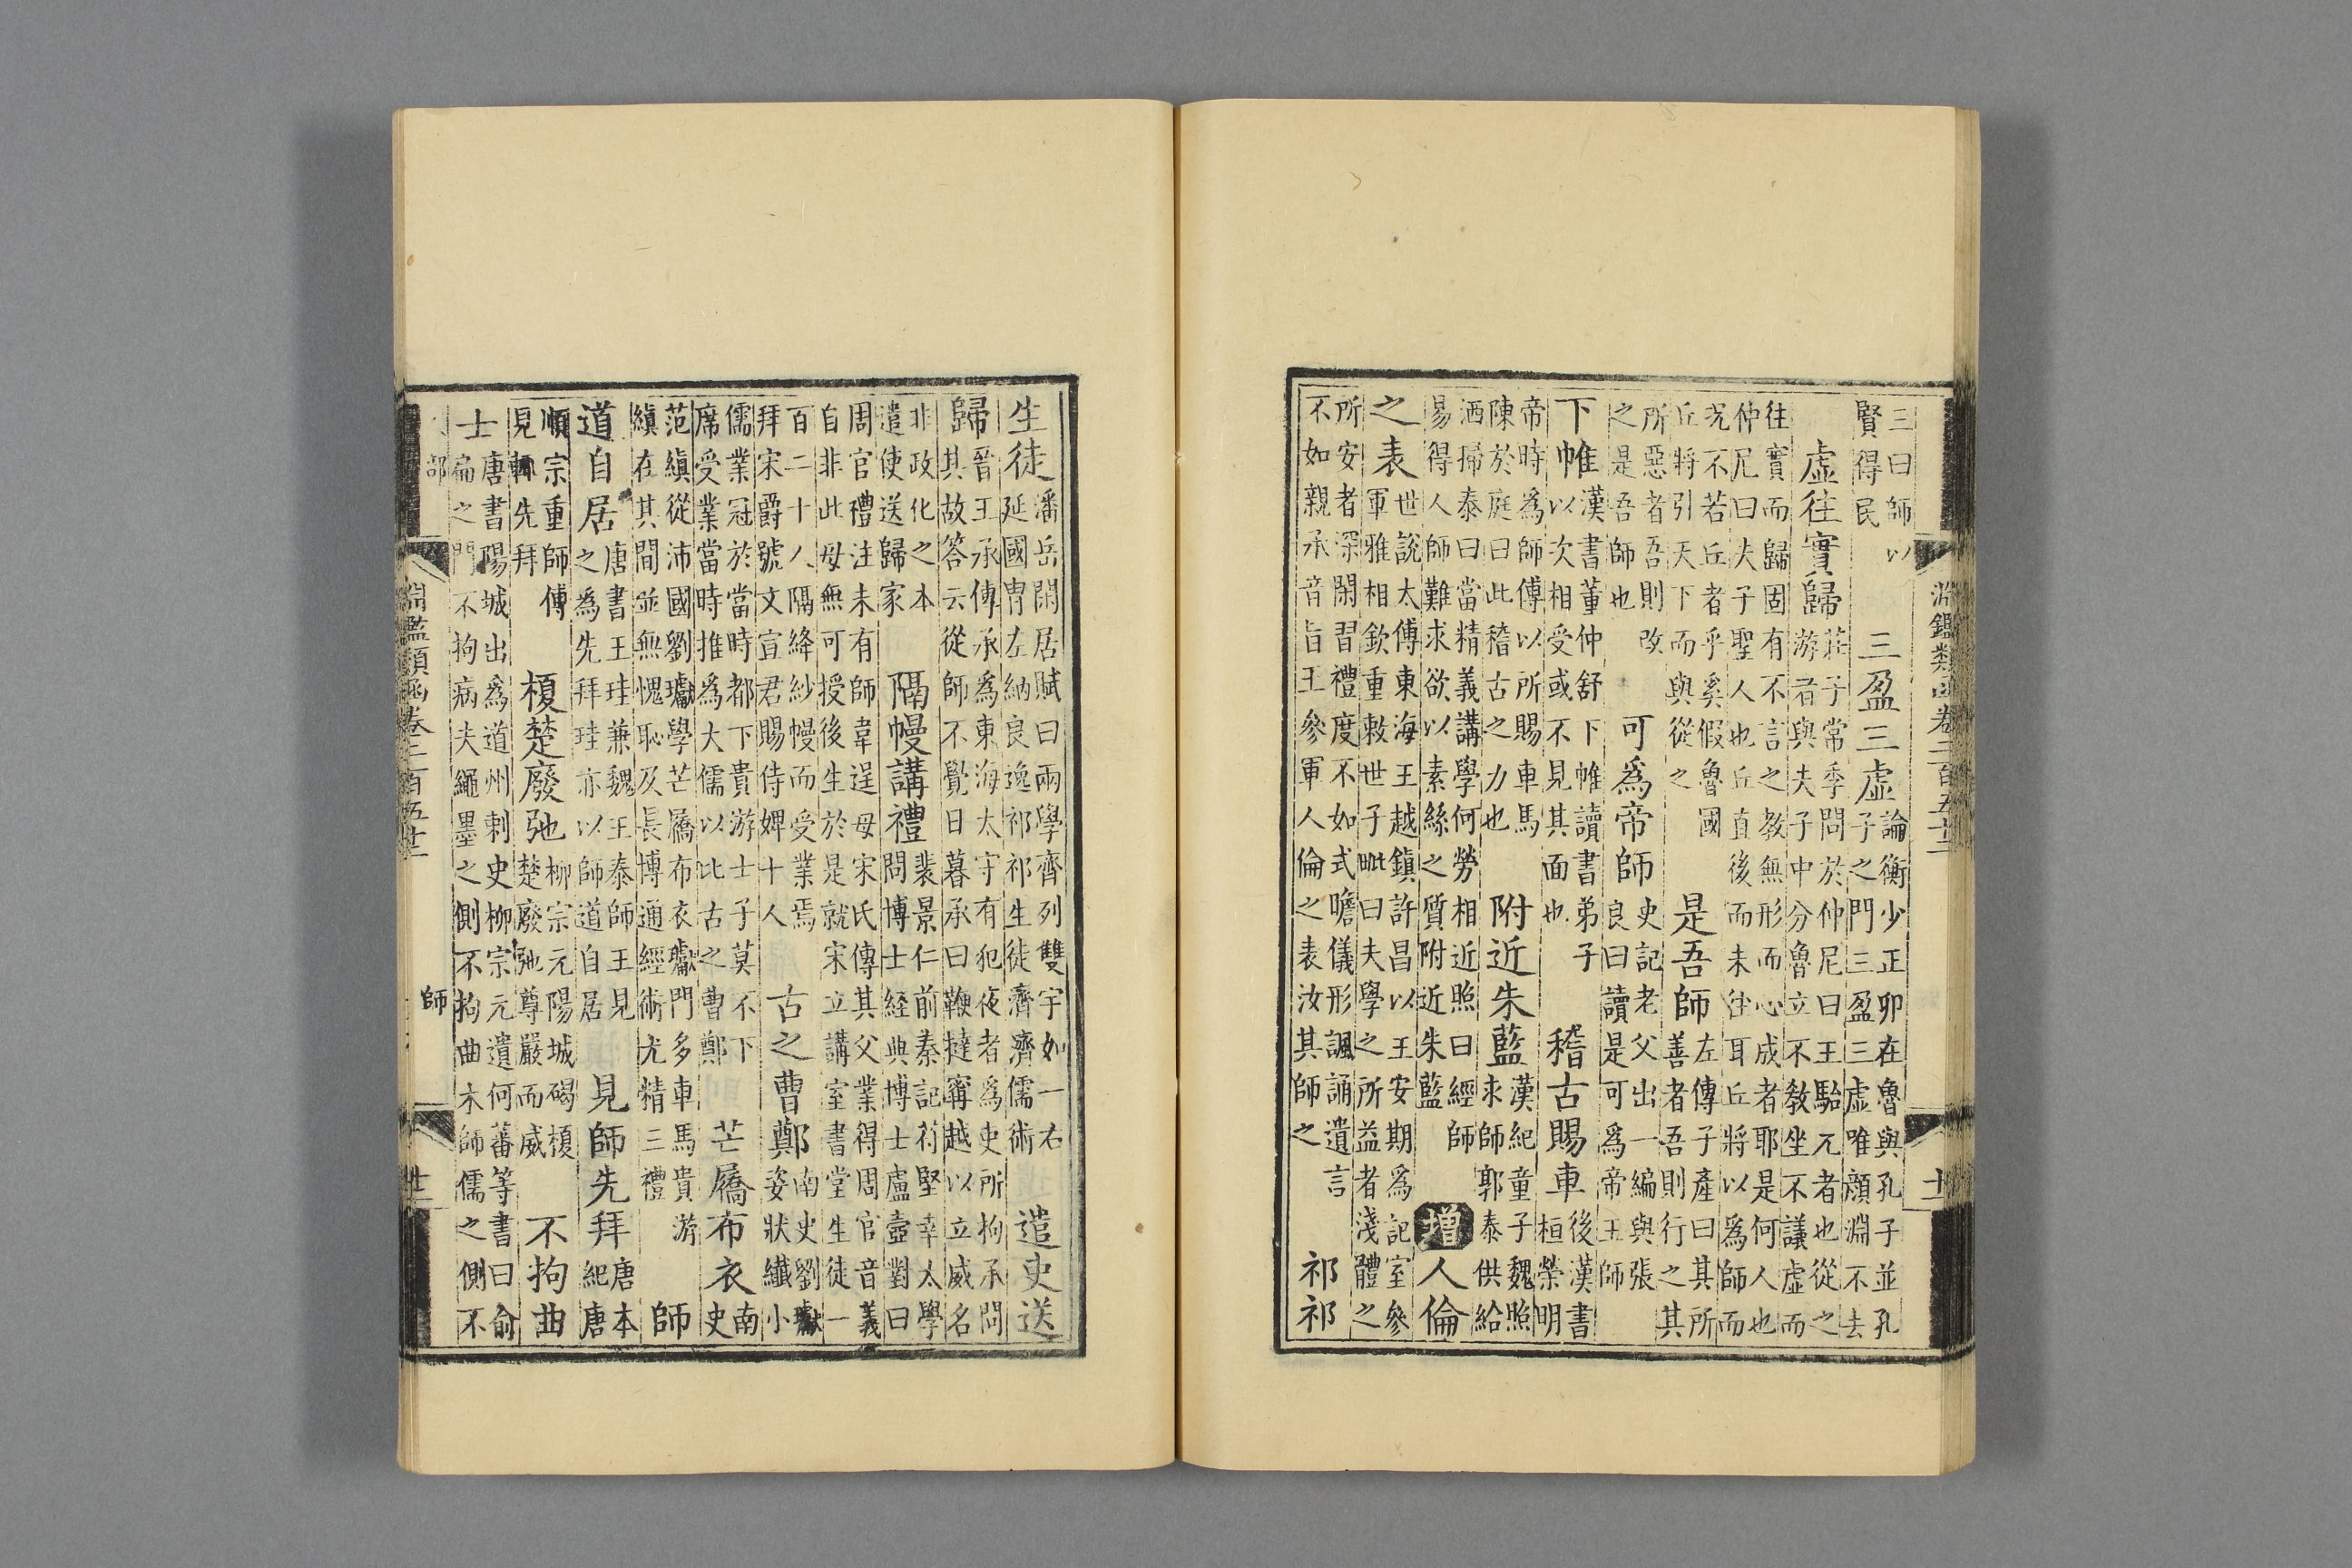 淵鑑類函卷二百五十二
十一
三曰師以
賢得民
三盈三虛
論衡少正卯在魯與孔子並孔
子之門三盈三虛唯顏淵不去
虛往實歸
莊子常季問於仲尼曰王駘兀者也從之
游者與夫子中分魯立不教坐不議虛而
往實而歸固有不言之教無形而心成者耶是何人也
仲尼曰夫子聖人也丘直後而未往耳丘將以爲師而
况不若丘者乎奚假魯國
丘將引天下而與從之
是吾師
左傳子產曰其所
善者吾則行之其
所惡者吾則改
之是吾師也
可爲帝師
史記老父出一編與張
良曰讀是可爲帝王師
下帷
漢書董仲舒下帷讀書弟子
以次相受或不見其面也
稽古賜車
後漢書
桓榮明
帝時爲師傅以所賜車馬
陳於庭曰此稽古之力也
附近朱藍
漢紀童子魏照
求師郭泰供給
洒掃泰曰當精義講學何勞相近照曰經師
易得人師難求欲以素絲之質附近朱藍
增
人倫
之表
世說太傅東海王越鎮許昌以王安期爲記室參
軍雅相欽重敕世子毗曰夫學之所益者淺體之
所安者深閑習禮度不如式瞻儀形諷誦遺言
不如親承音旨王參軍人倫之表汝其師之
祁祁
生徒
潘岳閑居賦曰兩學齊列雙宇如一右
延國冑左納良逸祁祁生徒濟濟儒術
遣吏送
歸
晉王承傳承爲東海太守有犯夜者爲吏所拘承問
其故答云從師不覺日暮承曰鞭撻甯越以立威名
非政化之本
遣使送歸家
隔幔講禮
裴景仁前秦記苻堅幸太學
問博士経典博士盧壺對曰
周官禮注未有師韋逞母宋氏傳其父業得周官音義
自非此母無可授後生於是就宋立講室書堂生徒一
百二十人隔絳紗幔而受業焉
拜宋爵號文宣君賜侍婢十人
古之曹鄭
南史劉瓛
姿狀纖小
儒業冠於當時都下貴游士子莫不下
席受業當時推爲大儒以比古之曹鄭
芒屩布衣
南
史
范縝從沛國劉瓛學芒屩布衣瓛門多車馬貴游
縝在其間竝無愧恥及長博通經術尤精三禮
師
道自居
唐書王珪兼魏王泰師王見
之爲先拜珪亦以師道自居
見師先拜
唐本
紀唐
順宗重師傅
見輒先拜
榎楚廢弛
柳宗元陽城碣榎
楚廢弛尊嚴而威
不拘曲
士
唐書陽城出爲道州刺史柳宗元遺何蕃等書曰俞
扁之門不拘病夫繩墨之側不拘曲木師儒之側不
部
淵鑑類函卷二百五十二
師
十二